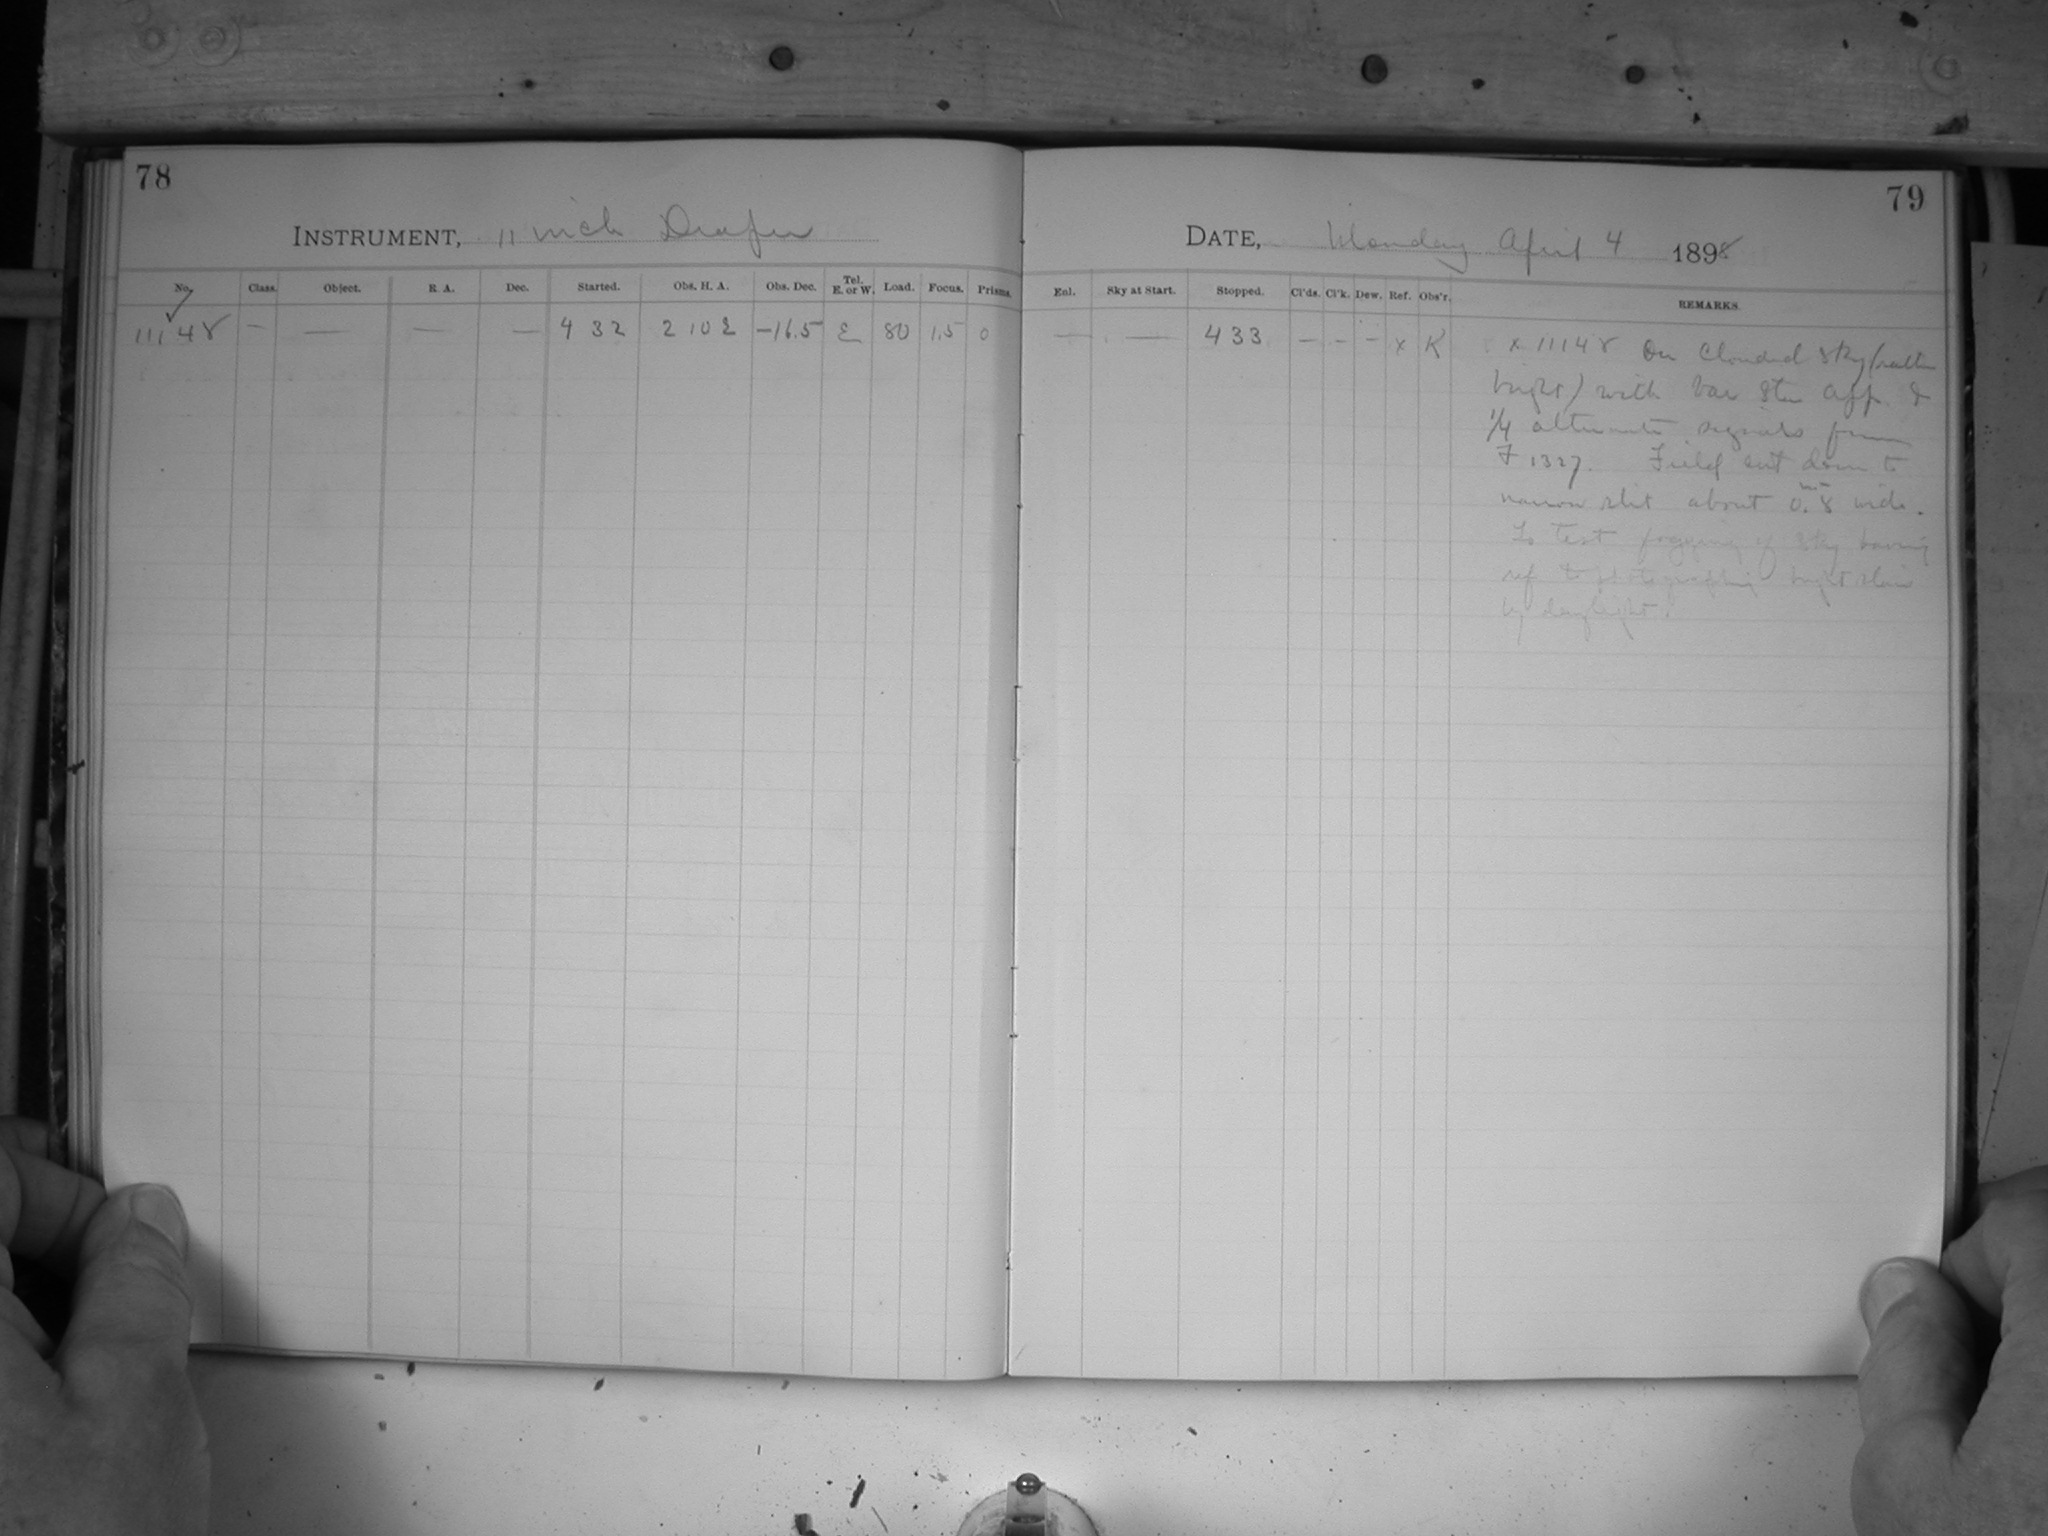 78
INSTRUMENT, 11 inch Draper
No. Class. Object. R. A. Dec. Started. Obs. H. A. Obs. Dec. Tel. E. or W. Load. Focus. Prisms.
11148 — — — — 4 32 2 10 E –16.5 E 80 1.5 0
79
DATE, Monday April 4 1898
Enl. Sky at Start. Stopped. Cl'ds. Cl'k. Dew. Ref. Obs'r. REMARKS.
— — 4 33 – – – x K x 11148 On Clouded Sky (rather
bright) with Var Star App. &
1/4 alternate signals from
F 1327. Field cut down to
narrow slit about 0.8 wide.
To test fogging of sky having
ref to photographing bright stars
by daylight.